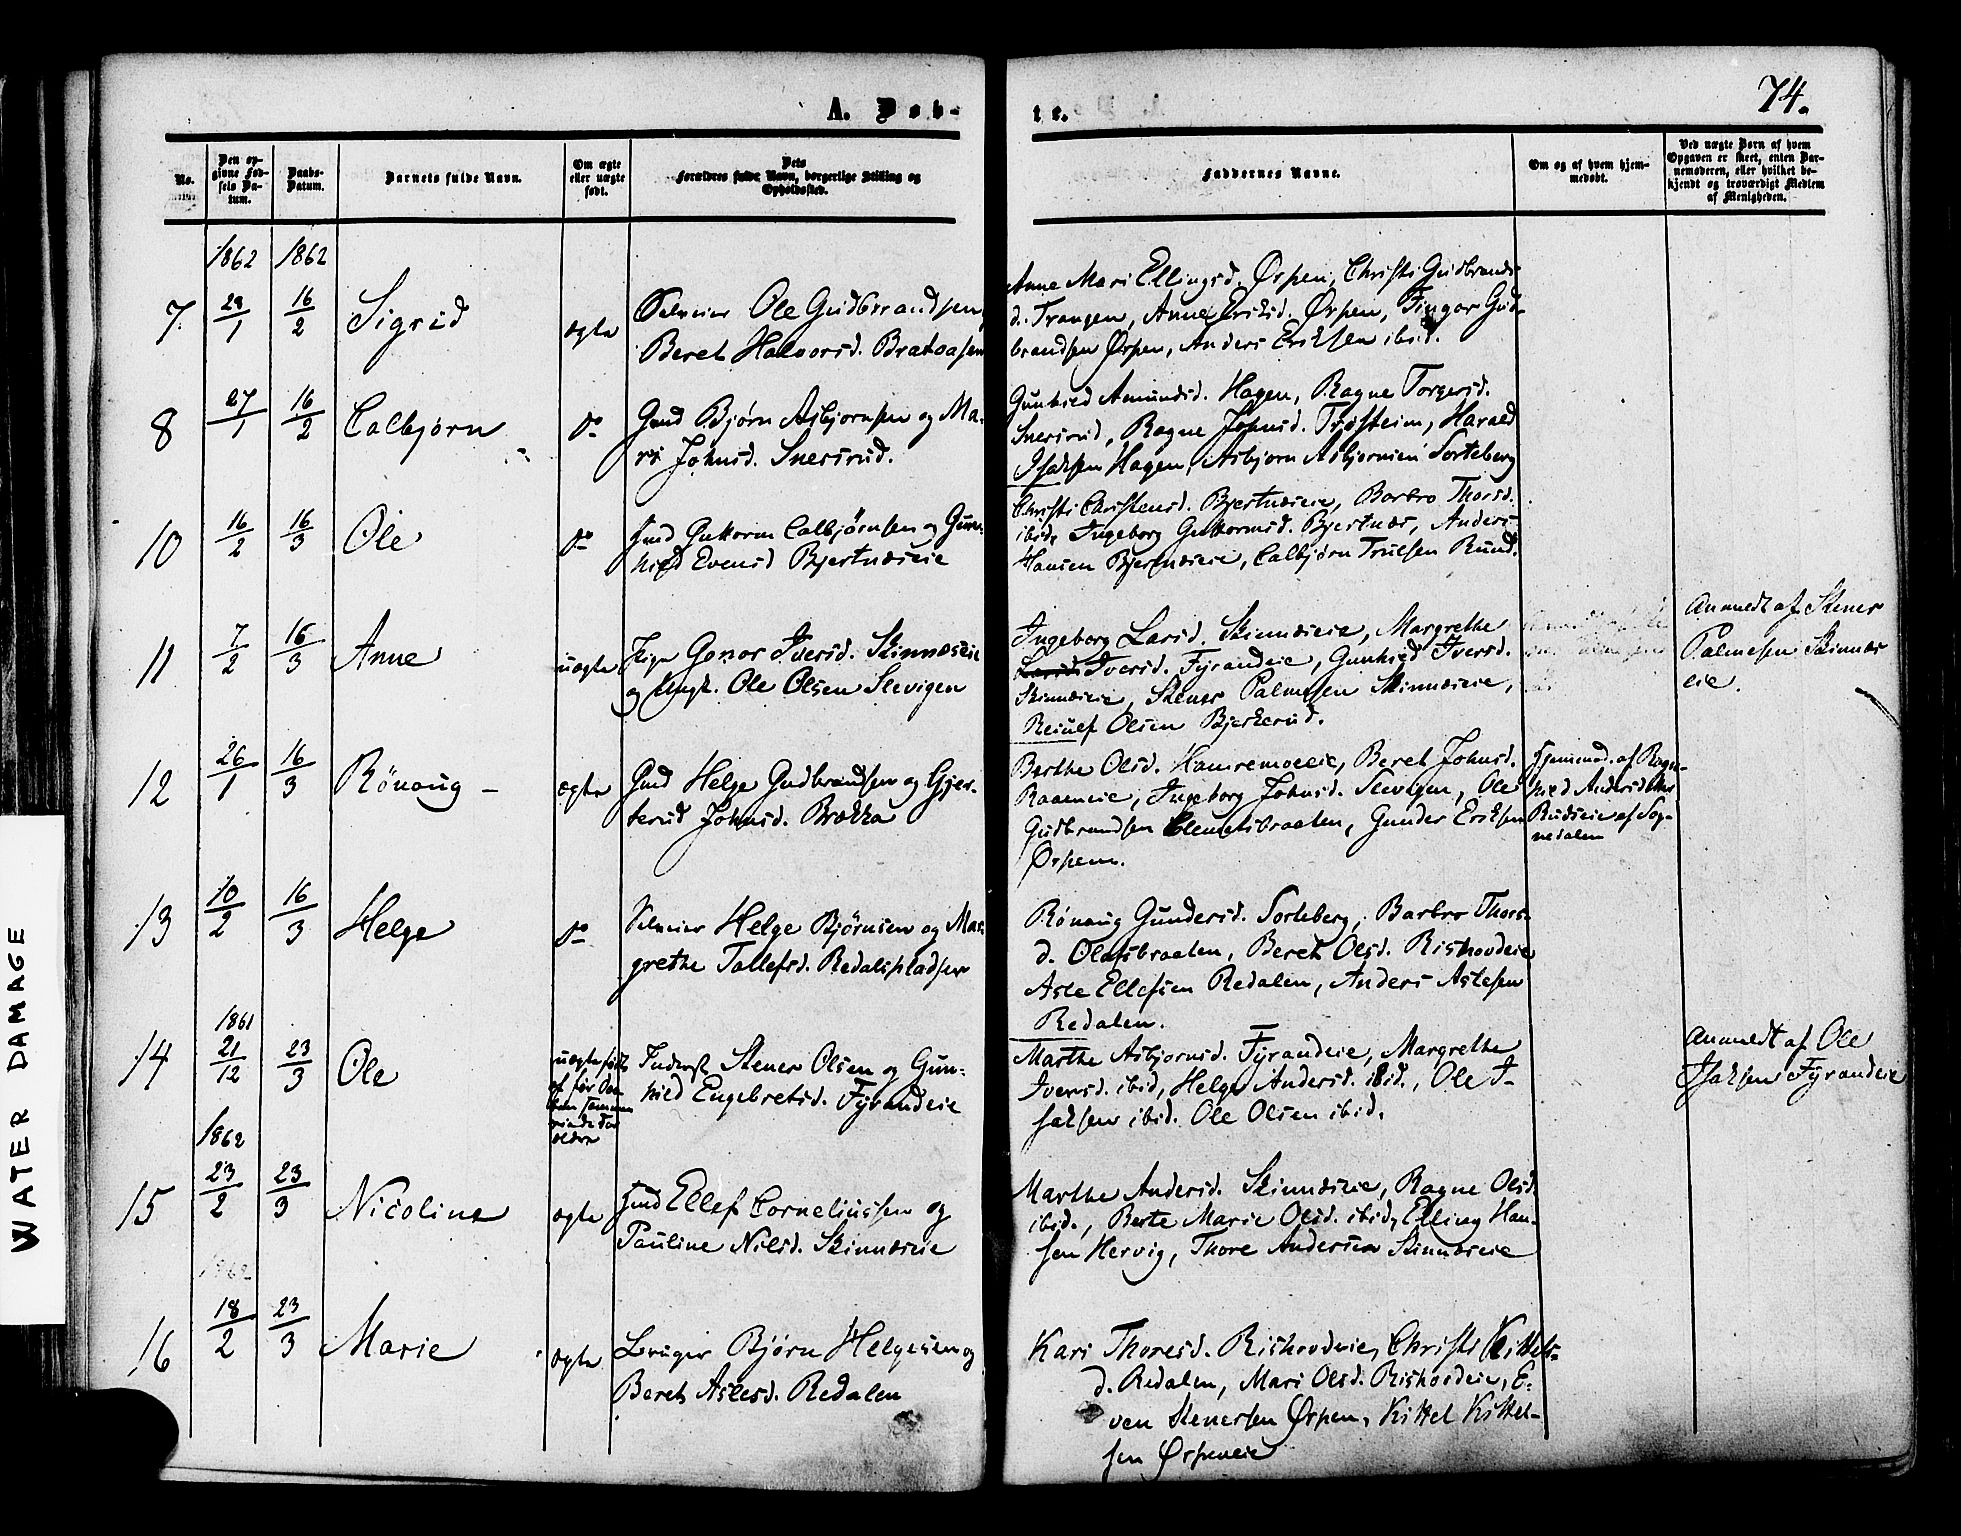 74.
A. Døb-
te.
No.
Den op-
givne Fød-
sels Da-
tum.
Daabs-
Datum.
Barnets fulde Navn.
Om ægte
eller uægte
født.
Dets
Forældres fulde Navn, borgerlige Stilling og
Opholdssted.
Faddernes Navne.
Om og af hvem hjem-
medøbt.
Ved uægte Børn af hvem
Opgaven er skeet, enten Bar-
nemoderen, eller hvilket be-
kjendt og troværdigt Medlem
af Menigheden.
1862 1862
7. 29/1 16/2 Sigrid ægte
Selveier Ole Gudbrandsen,
Beret Halvorsd. Brataasen
Anne Mari Ellingsd. Ørpen, Christi Gudbrands-
d. Trangen, Anne Eriksd. Ørpen, Fingar Gud-
brandsen Ørpen, Anders Eriksen ibid.
8 27/1 16/2 Colbjørn do
Gmd Bjørn Asbjørnsen og Ma-
ri Johnsd. Snersrud.
Gunhild Amundsd. Hagen, Ragne Torgersd.
Snersrud, Ragne Johnsd. Trøsteim, Harald
Isaksen Hagen, Asbjørn Asbjørnsen Sorteberg
10 16/2 16/3 Ole do
Jnd Guttorm Colbjørnsen og Gun-
hild Evensd Bjertnæseie
Christi Christensd. Bjertnæseie, Barbro Thorsd.
ibid, Ingeborg Guttormsd. Bjertnæs, Anders
Hansen Bjertnæseie, Colbjørn Truelsen Rund.
11 7/2 16/3 Anne uægte
Pige Gonor Iversd. Skinnæseie
og Ungk. Ole Olsen Slevigen
Ingeborg Larsd. Skinnæseie, Margrethe
Larsd. Iversd. Fyrandeie, Gunhild Iversd.
Skinnæseie, Stener Palmesen Skinnæseie,
Reiulf Olsen Bjerkerud.
Anmeldt af Stener
Palmesen Skinnæs
eie.
12 26/1 16/3 Rönaug - ægte
Gmd Helge Gudbrandsen og Gjer-
terud Johnsd. Brække
Berthe Olsd. Hamremoeie, Beret Johnsd.
Raaeneie, Ingeborg Johnsd. Slevigen, Ole
Gudbrandsen Clemetsbraaten, Gunder Eriksen
Ørpen.
Hjemmed. af Ragn-
hild Andersd.
Rudseie af Sog-
nedalen
13 10/2 16/3 Helge do
Selveier Helge Bjørnsen og Mar-
grethe Tollefsd. Redalspladsen
Rønaug Gundersd. Sorteberg, Barbro Thors-
d. Olafsbraaten, Beret Olsd. Rishovdeie
Asle Ellefsen Redalen, Anders Aslesen
Redalen.
1861
14 21/12 23/3 Ole
uægte født
Inderst Stener Olsen og Gun-
hild Engebretsd. Fyrandeie
Marthe Asbjørnsd. Fyrandeie, Margrethe
Iversd. ibid, Helge Andersd. ibid., Ole I-
saksen ibid. Ole Olsen ibid.
Anmeldt af Ole
Isaksen Fyrandeie
1862
15 23/2 23/3 Nicoline ægte
Jnd Ellef Corneliussen og
Pauline Nilsd. Skinnæseie
Marthe Andersd. Skinnæseie, Ragne Olsd.
ibid., Berte Marie Olsd. ibid, Elling Han-
sen Hervig, Thore Andersen Skinnæseie
1862
16 18/2 23/3 Marie ægte
Bruger Bjørn Helgesen og
Beret Aslesd. Redalen
Kari Thoresd. Rishovdeie, Christi Kittels-
d. Redalen, Mari Olsd. Rishovdeie, E-
ven Stenersen Ørpen, Kittel Kittel-
sen Ørpeneie
WATER DAMAGE